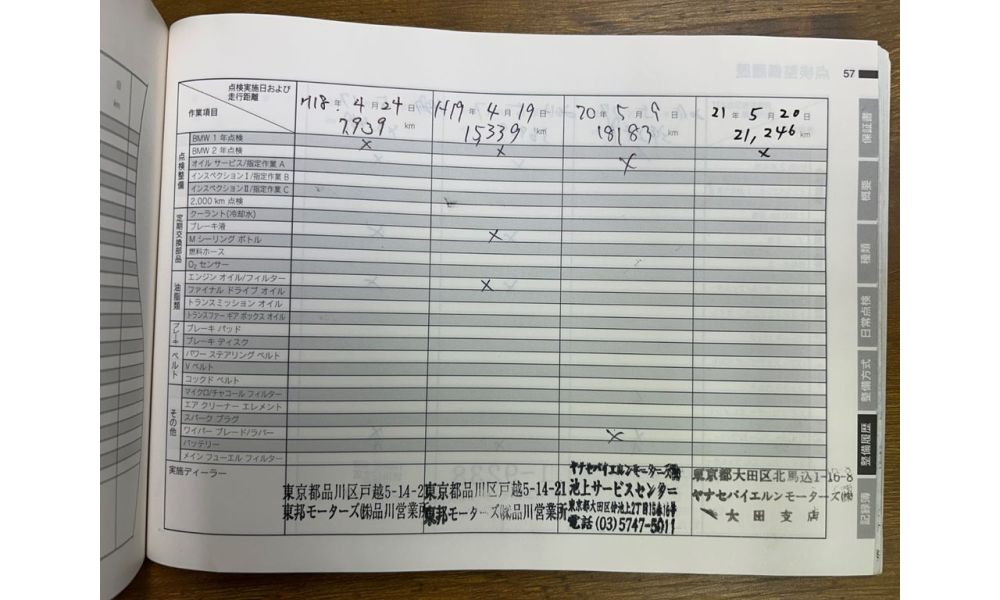 57
点検実施日および
走行距離
作業項目
H18年 4月 24日
7,939 km
H19年 4月 19日
15339 km
20年 5月 9日
18183 km
21年 5月 20日
21,246 km
点検整備
BMW 1 年点検 ×
BMW 2 年点検 × ×
オイル サービス/指定作業 A ×
インスペクションⅠ/指定作業 B
インスペクションⅡ/指定作業 C
2,000 km 点検
定期交換部品
クーラント(冷却水)
ブレーキ液
M シーリング ボトル ×
燃料ホース
O₂ センサー
油脂類
エンジン オイル/フィルター
ファイナル ドライブ オイル ×
トランスミッション オイル
トランスファー ギア ボックス オイル
ブレーキ
ブレーキ パッド
ブレーキ ディスク
ベルト
パワー ステアリング ベルト
V ベルト
コックド ベルト
その他
マイクロ/チャコール フィルター
エア クリーナー エレメント
スパーク プラグ
ワイパー ブレード/ラバー ×
バッテリー
メイン フューエル フィルター
実施ディーラー
東京都品川区戸越5-14-2
東邦モーターズ㈱品川営業所
東京都品川区戸越5-14-21
東邦モーターズ㈱品川営業所
ヤナセバイエルンモーターズ㈱
池上サービスセンター
東京都大田区仲池上2丁目15番16号
電話 (03) 5747-5011
東京都大田区北馬込1-16-8
ヤナセバイエルンモーターズ㈱
大田支店
保証書
概要
種類
日常点検
整備方式
整備履歴
記録簿
km